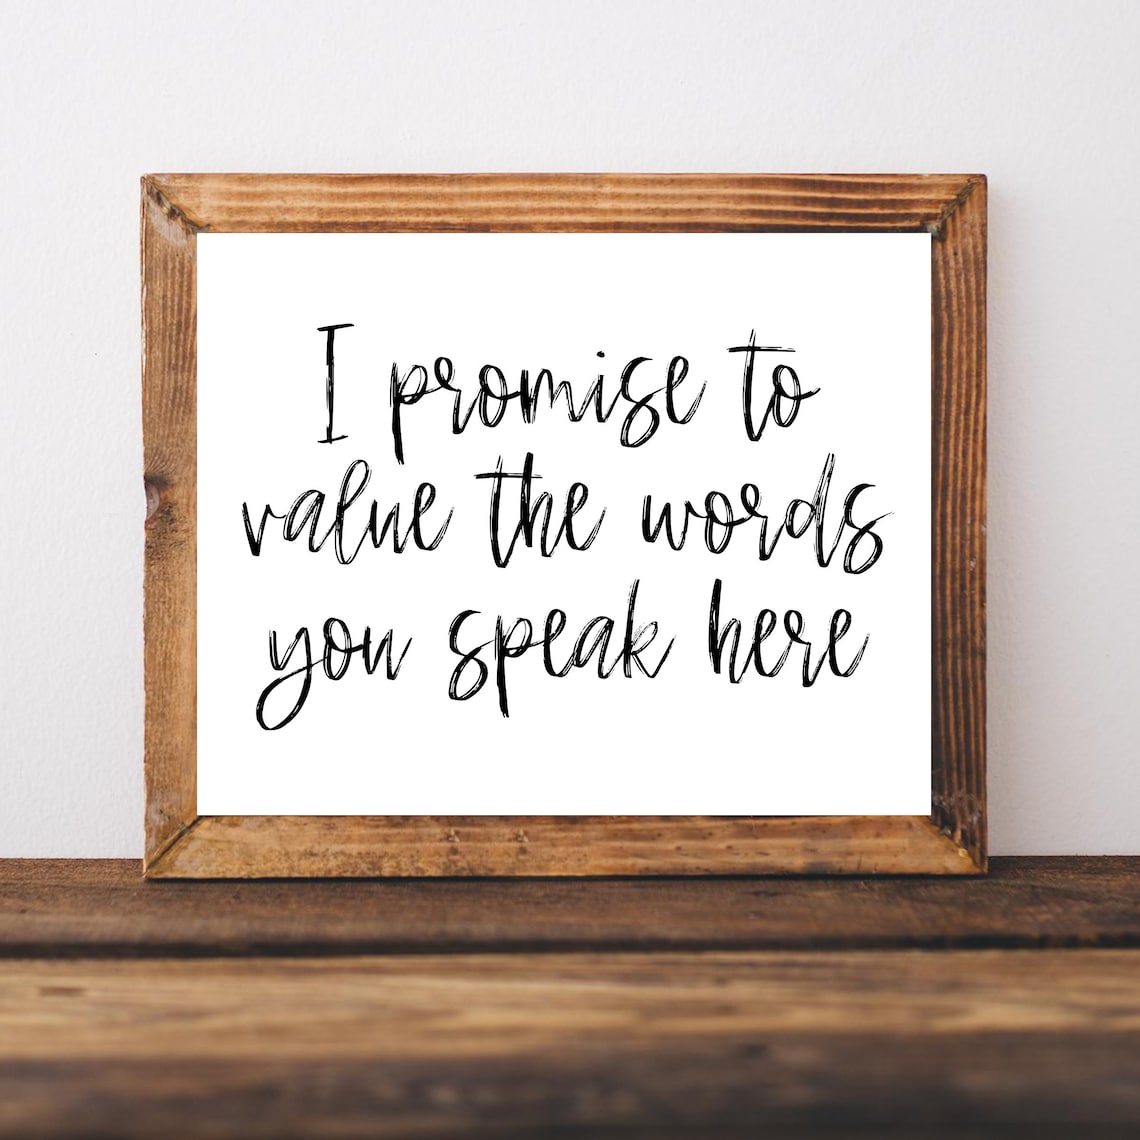 I promise to
value the words
you speak here